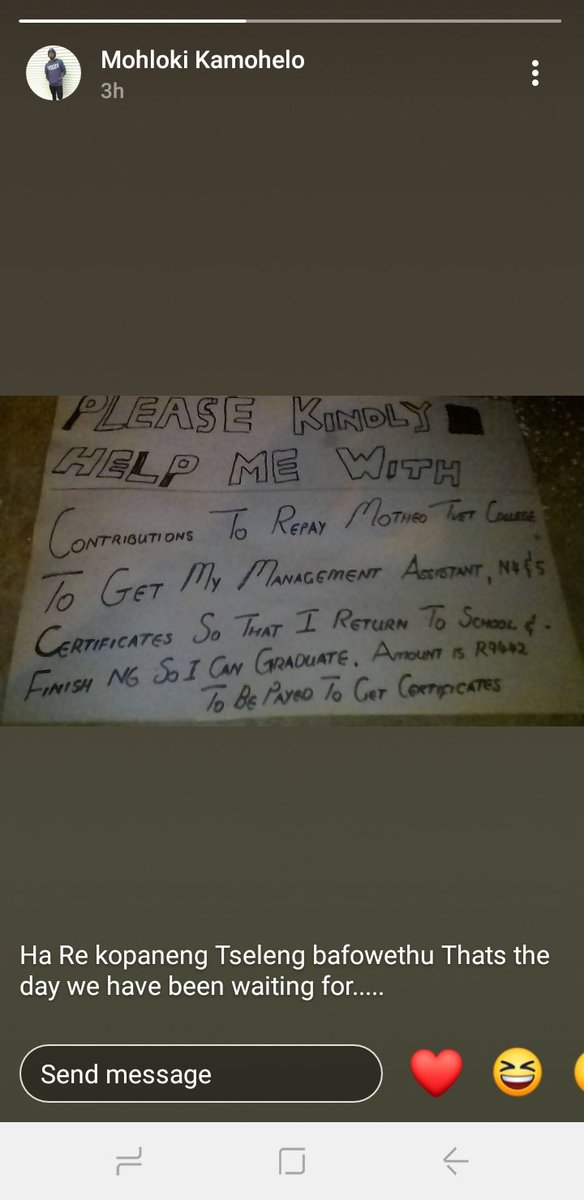 Mohloki Kamohelo
3h
PLEASE KINDLY
HELP ME WITH
CONTRIBUTIONS TO REPAY MOTHEO TVET COLLEGE
TO GET MY MANAGEMENT ASSISTANT, N4&5
CERTIFICATES SO THAT I RETURN TO SCHOOL &
FINISH N6 SO I CAN GRADUATE. AMOUNT IS R9442
TO BE PAYED TO GET CERTIFICATES
Ha Re kopaneng Tseleng bafowethu Thats the
day we have been waiting for.....
Send message